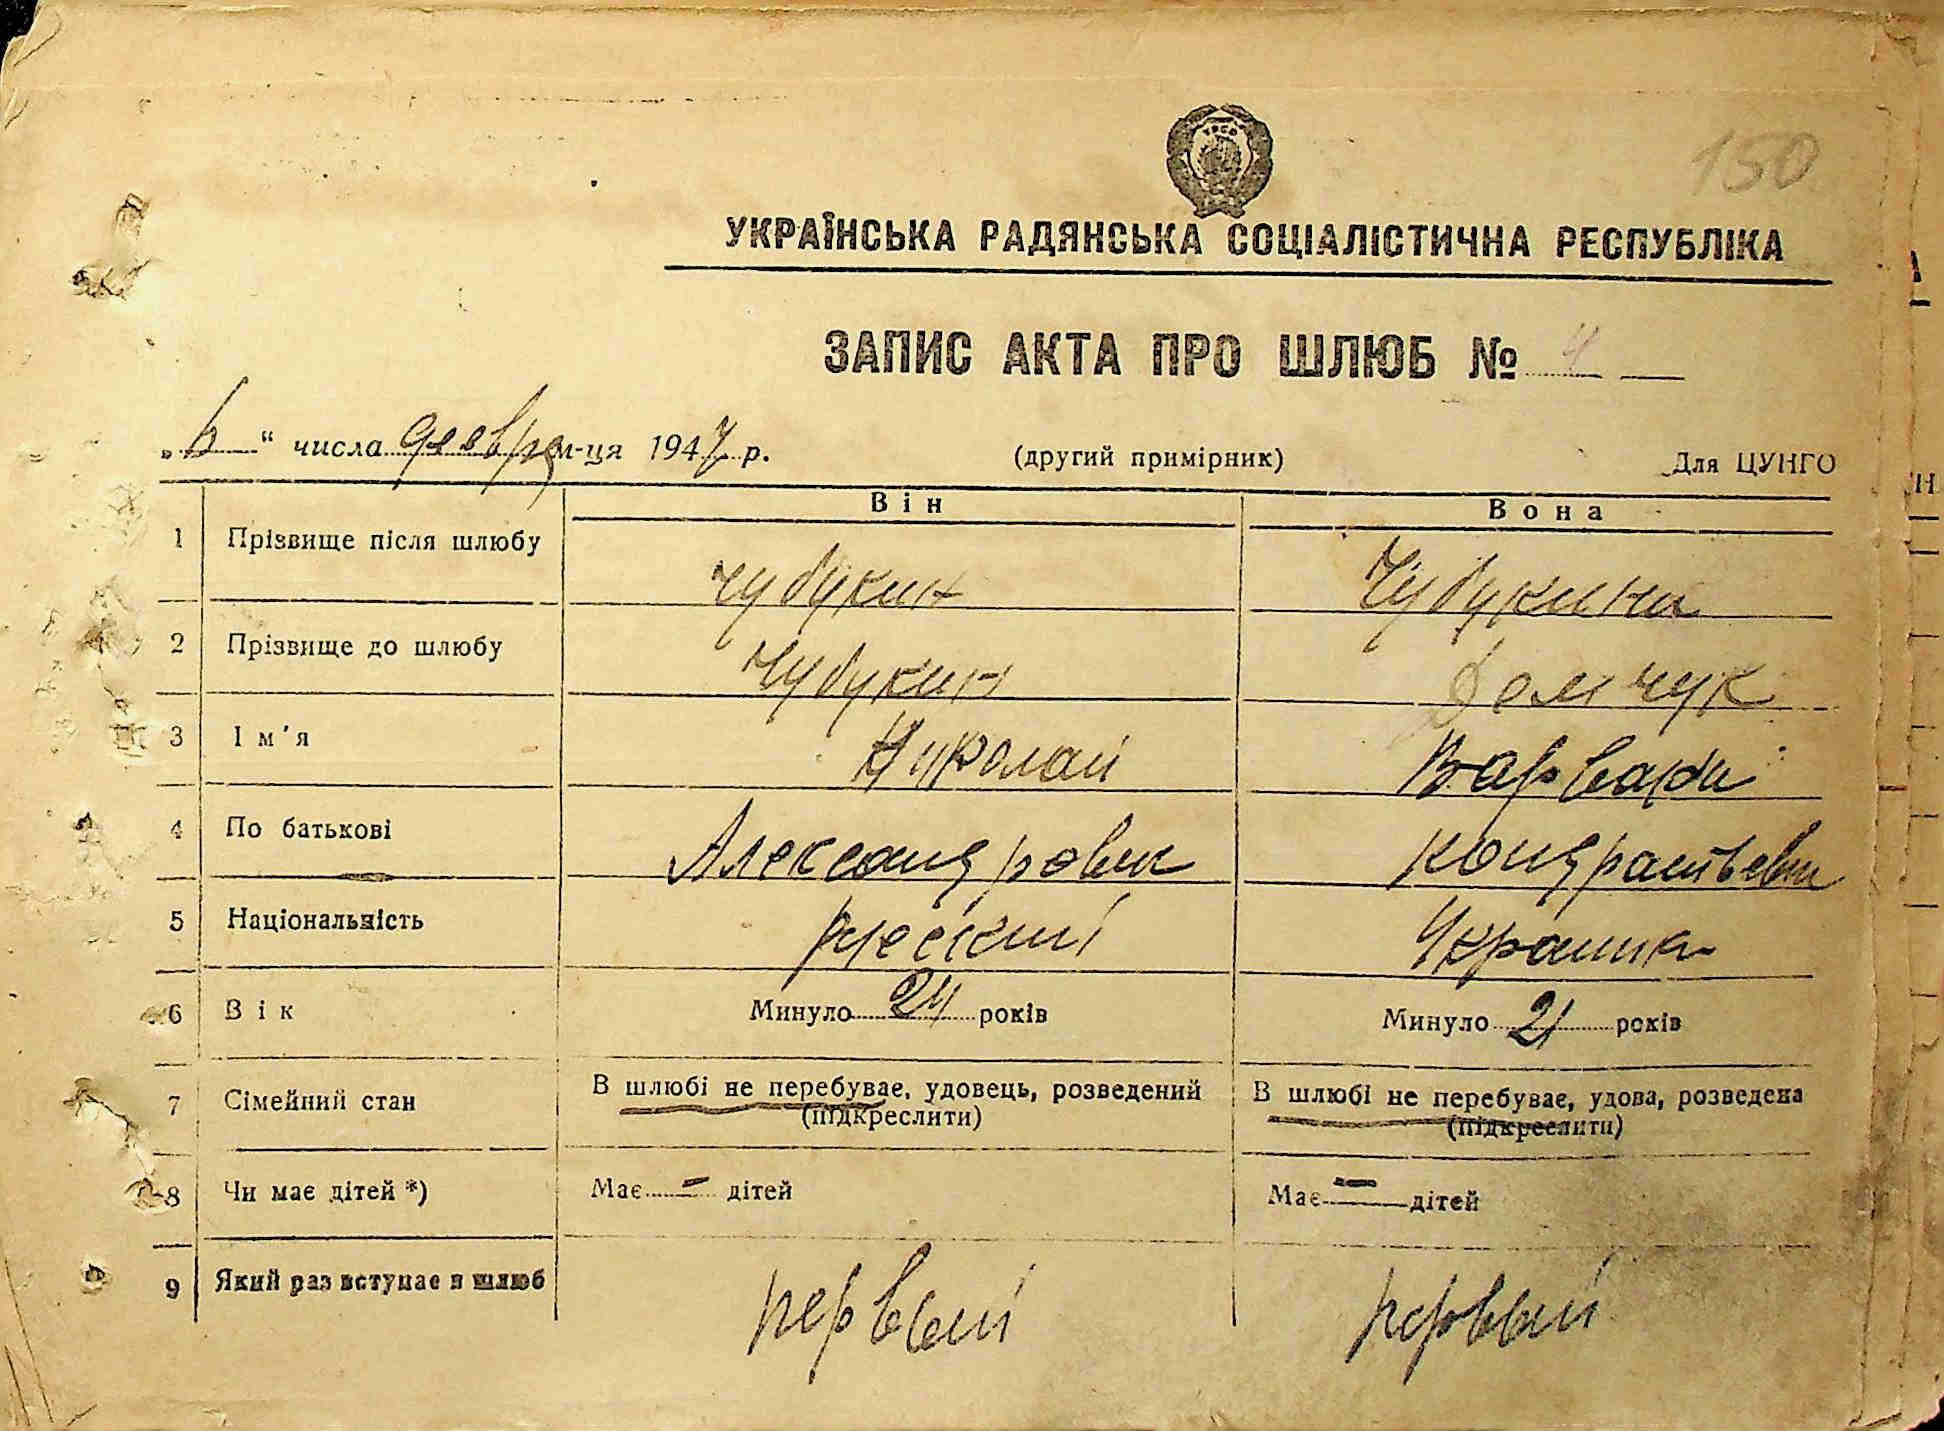 150
УКРАЇНСЬКА РАДЯНСЬКА СОЦІАЛІСТИЧНА РЕСПУБЛІКА
ЗАПИС АКТА ПРО ШЛЮБ № 4
„ 6 “ числа февраля м-ця 1947 р. (другий примірник) Для ЦУНГО
Він Вона
1 Прізвище після шлюбу Чубукин Чубукина
2 Прізвище до шлюбу Чубукин Домчук
3 Ім'я Николай Варвара
4 По батькові Александрович Кондратьевна
5 Національність русский Украинка
6 Вік Минуло 24 років Минуло 21 років
7 Сімейний стан В шлюбі не перебуває, удовець, розведений В шлюбі не перебуває, удова, розведена
(підкреслити) (підкреслити)
8 Чи має дітей *) Має – дітей Має – дітей
9 Який раз вступає в шлюб первый первый